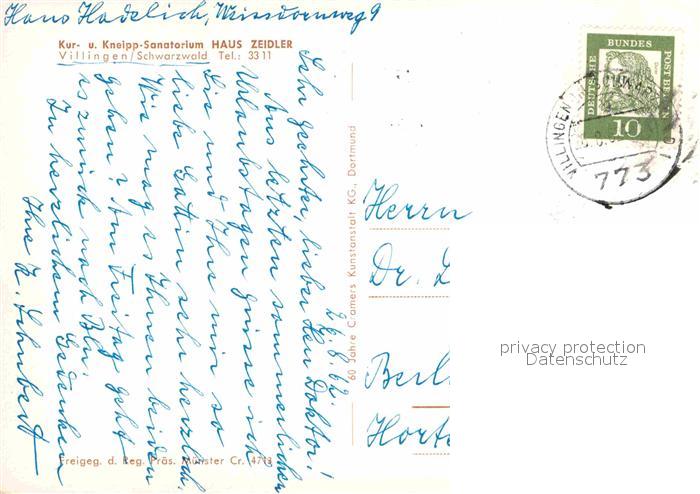 Hans Hadelich, Weissdornweg 9
Kur- u. Kneipp-Sanatorium HAUS ZEIDLER
Villingen/Schwarzwald Tel.: 3311
26.8.62.
Sehr geehrter, lieber Herr Doktor!
Aus letzten sommerlichen
Urlaubstagen grüsse ich
Sie und Ihre mir so
liebe Gattin sehr herzlich.
Wie mag es Ihnen beiden
gehen? Am Freitag geht
es zurück nach Bln.
In herzlichem Gedenken
Ihre K. Schubert
Freigeg. d. Reg. Präs. Münster Cr. 4713
60 Jahre Cramers Kunstanstalt KG., Dortmund
DEUTSCHE BUNDESPOST BERLIN
10
VILLINGEN
773
Herrn
Dr.
Berl
privacy protection
Datenschutz